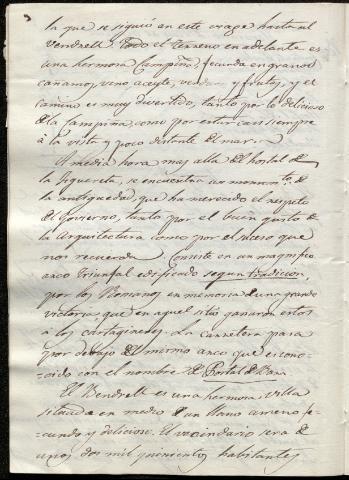 la que se siguió en este viage hasta el
Vendrell. Todo el terreno en adelante es
una hermosa Campiña, fecunda en granos
cañamos, vino aceyte, verduras y frutos, y el
camino es muy divertido, tanto por lo delicioso
de la Campiña, como por estar casi siempre
á la vista y poco distante del mar.
A media hora mas allá del hostal de
la Figuereta, se encuentra un monum.to de
la antiguedad, que ha merecido el respeto
del Govierno, tanto por el buen gusto de
la Arquitectura como por el suceso que
nos recuerda. Consiste en un magnifico
arco Triunfal edificado segun tradicion
por los Romanos en memoria de una grande
victoria que en aquel sitio ganaron estos
á los cartagineses. La carretera pasa
por debajo del mismo arco que es cono-
-cido con el nombre de Portal de Bara
El Vendrell es una hermosa villa
situada en medio de un llano terreno fe-
-cundo y delicioso. El vecindario sera de
unos dos mil quinientos habitantes